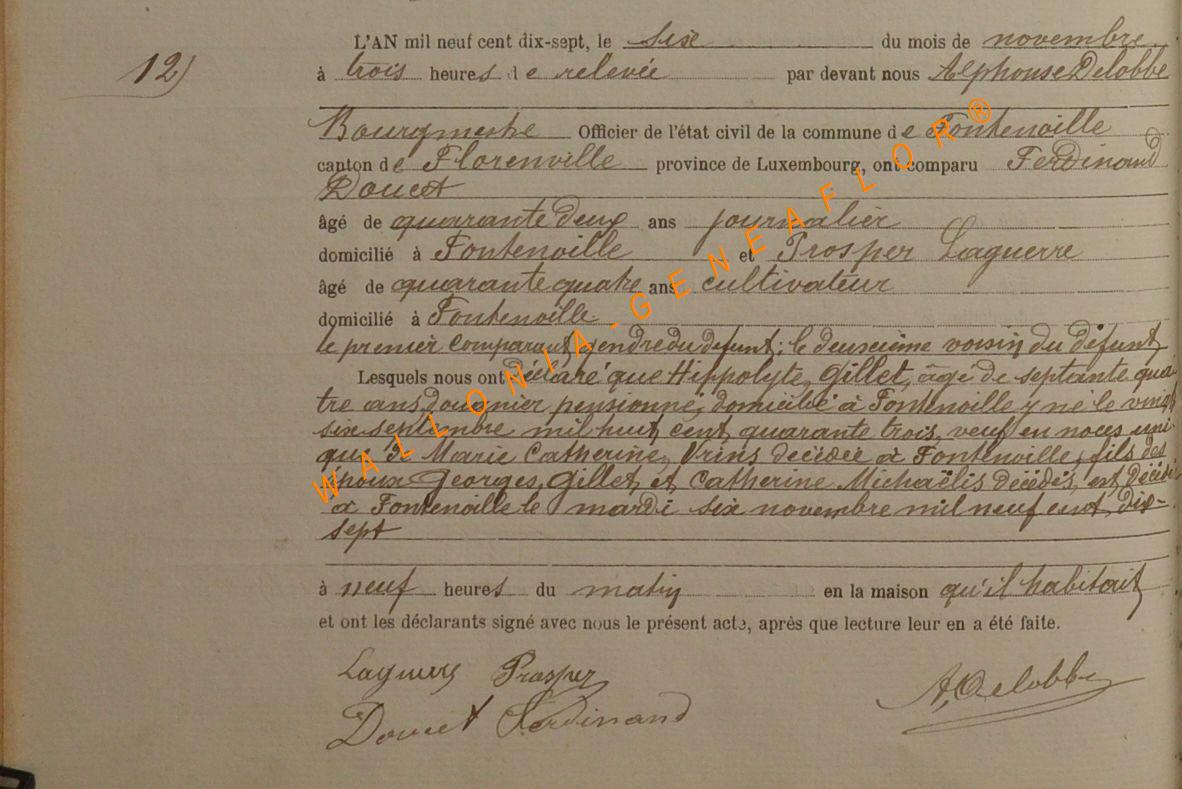 L'AN mil neuf cent dix-sept, le six du mois de novembre
12)
à trois heures de relevée par devant nous Alphonse Delobbe
Bourgmestre Officier de l'état civil de la commune de Fontenoille
canton de Florenville province de Luxembourg, ont comparu Ferdinand
Doucet
âgé de quarante deux ans journalier
domicilié à Fontenoille et Prosper Laguerre
âgé de quarante quatre ans cultivateur
domicilié à Fontenoille
le premier comparant gendre du défunt; le deuxième voisin du défunt
Lesquels nous ont déclaré que Hippolyte Gillet, âgé de septante qua
tre ans douanier pensionné, domicilié à Fontenoille y né le vingt
six septembre mil huit cent quarante trois, veuf en noces uni
que de Marie Catherine décédée à Fontenoille, fils des
époux Georges Gillet et Catherine Michaëlis décédés, est décédé
à Fontenoille le mardi six novembre mil neuf cent dix-
sept
à neuf heures du matin en la maison qu'il habitait
et ont les déclarants signé avec nous le présent acte, après que lecture leur en a été faite.
Laguerre Prosper
A, Delobbe
Doucet Ferdinand
WALLONIA-GENEAFLOR®